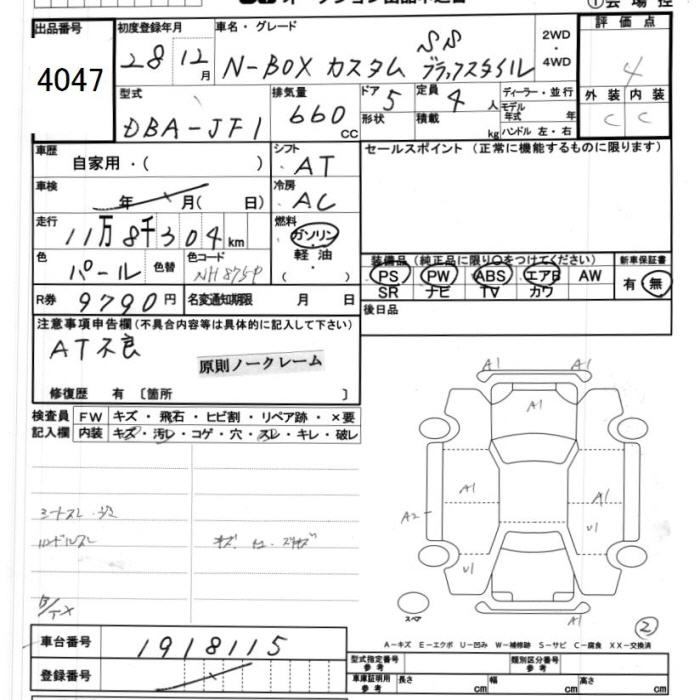 出品番号
4047
初度登録年月
28 12月
車名・グレード
N-BOX カスタム SS ブラックスタイル
2WD
・
4WD
評価点
4
外装 内装
C C
型式
DBA-JF1
排気量
660 CC
ドア 5
形状
定員 4 人
積載 kg
ディーラー・並行
モデル
年式 年
ハンドル 左・右
車歴
自家用・( )
シフト
AT
車検
年 月( 日)
冷房
AC
走行
11万8千304km
燃料
ガソリン・
軽油
( ・ )
色
パール
色替
色コード
NH875P
R券 9790円
名変通知期限 月 日
セールスポイント(正常に機能するものに限ります)
装備品(純正品に限り○をつけてください)
PS PW ABS エアB AW
SR ナビ TV カワ
新車保証書
有・無
後日品
注意事項申告欄(不具合内容等は具体的に記入して下さい)
AT不良
原則ノークレーム
修復歴 有 〔箇所 〕
検査員
記入欄
FW キズ・飛石・ヒビ割・リペア跡・×要
内装 キズ・汚レ・コゲ・穴・スレ・キレ・破レ
A1 A1
A1
A1
A1
A2
U1
U1
A1
スペア
2
A-キズ E-エクボ U-凹み W-補修跡 S-サビ C-腐食 XX-交換済
車台番号
1918115
登録番号
型式指定番号
参考
類別区分番号
参考
車庫証明用
参考
長さ cm
幅 cm
高さ cm